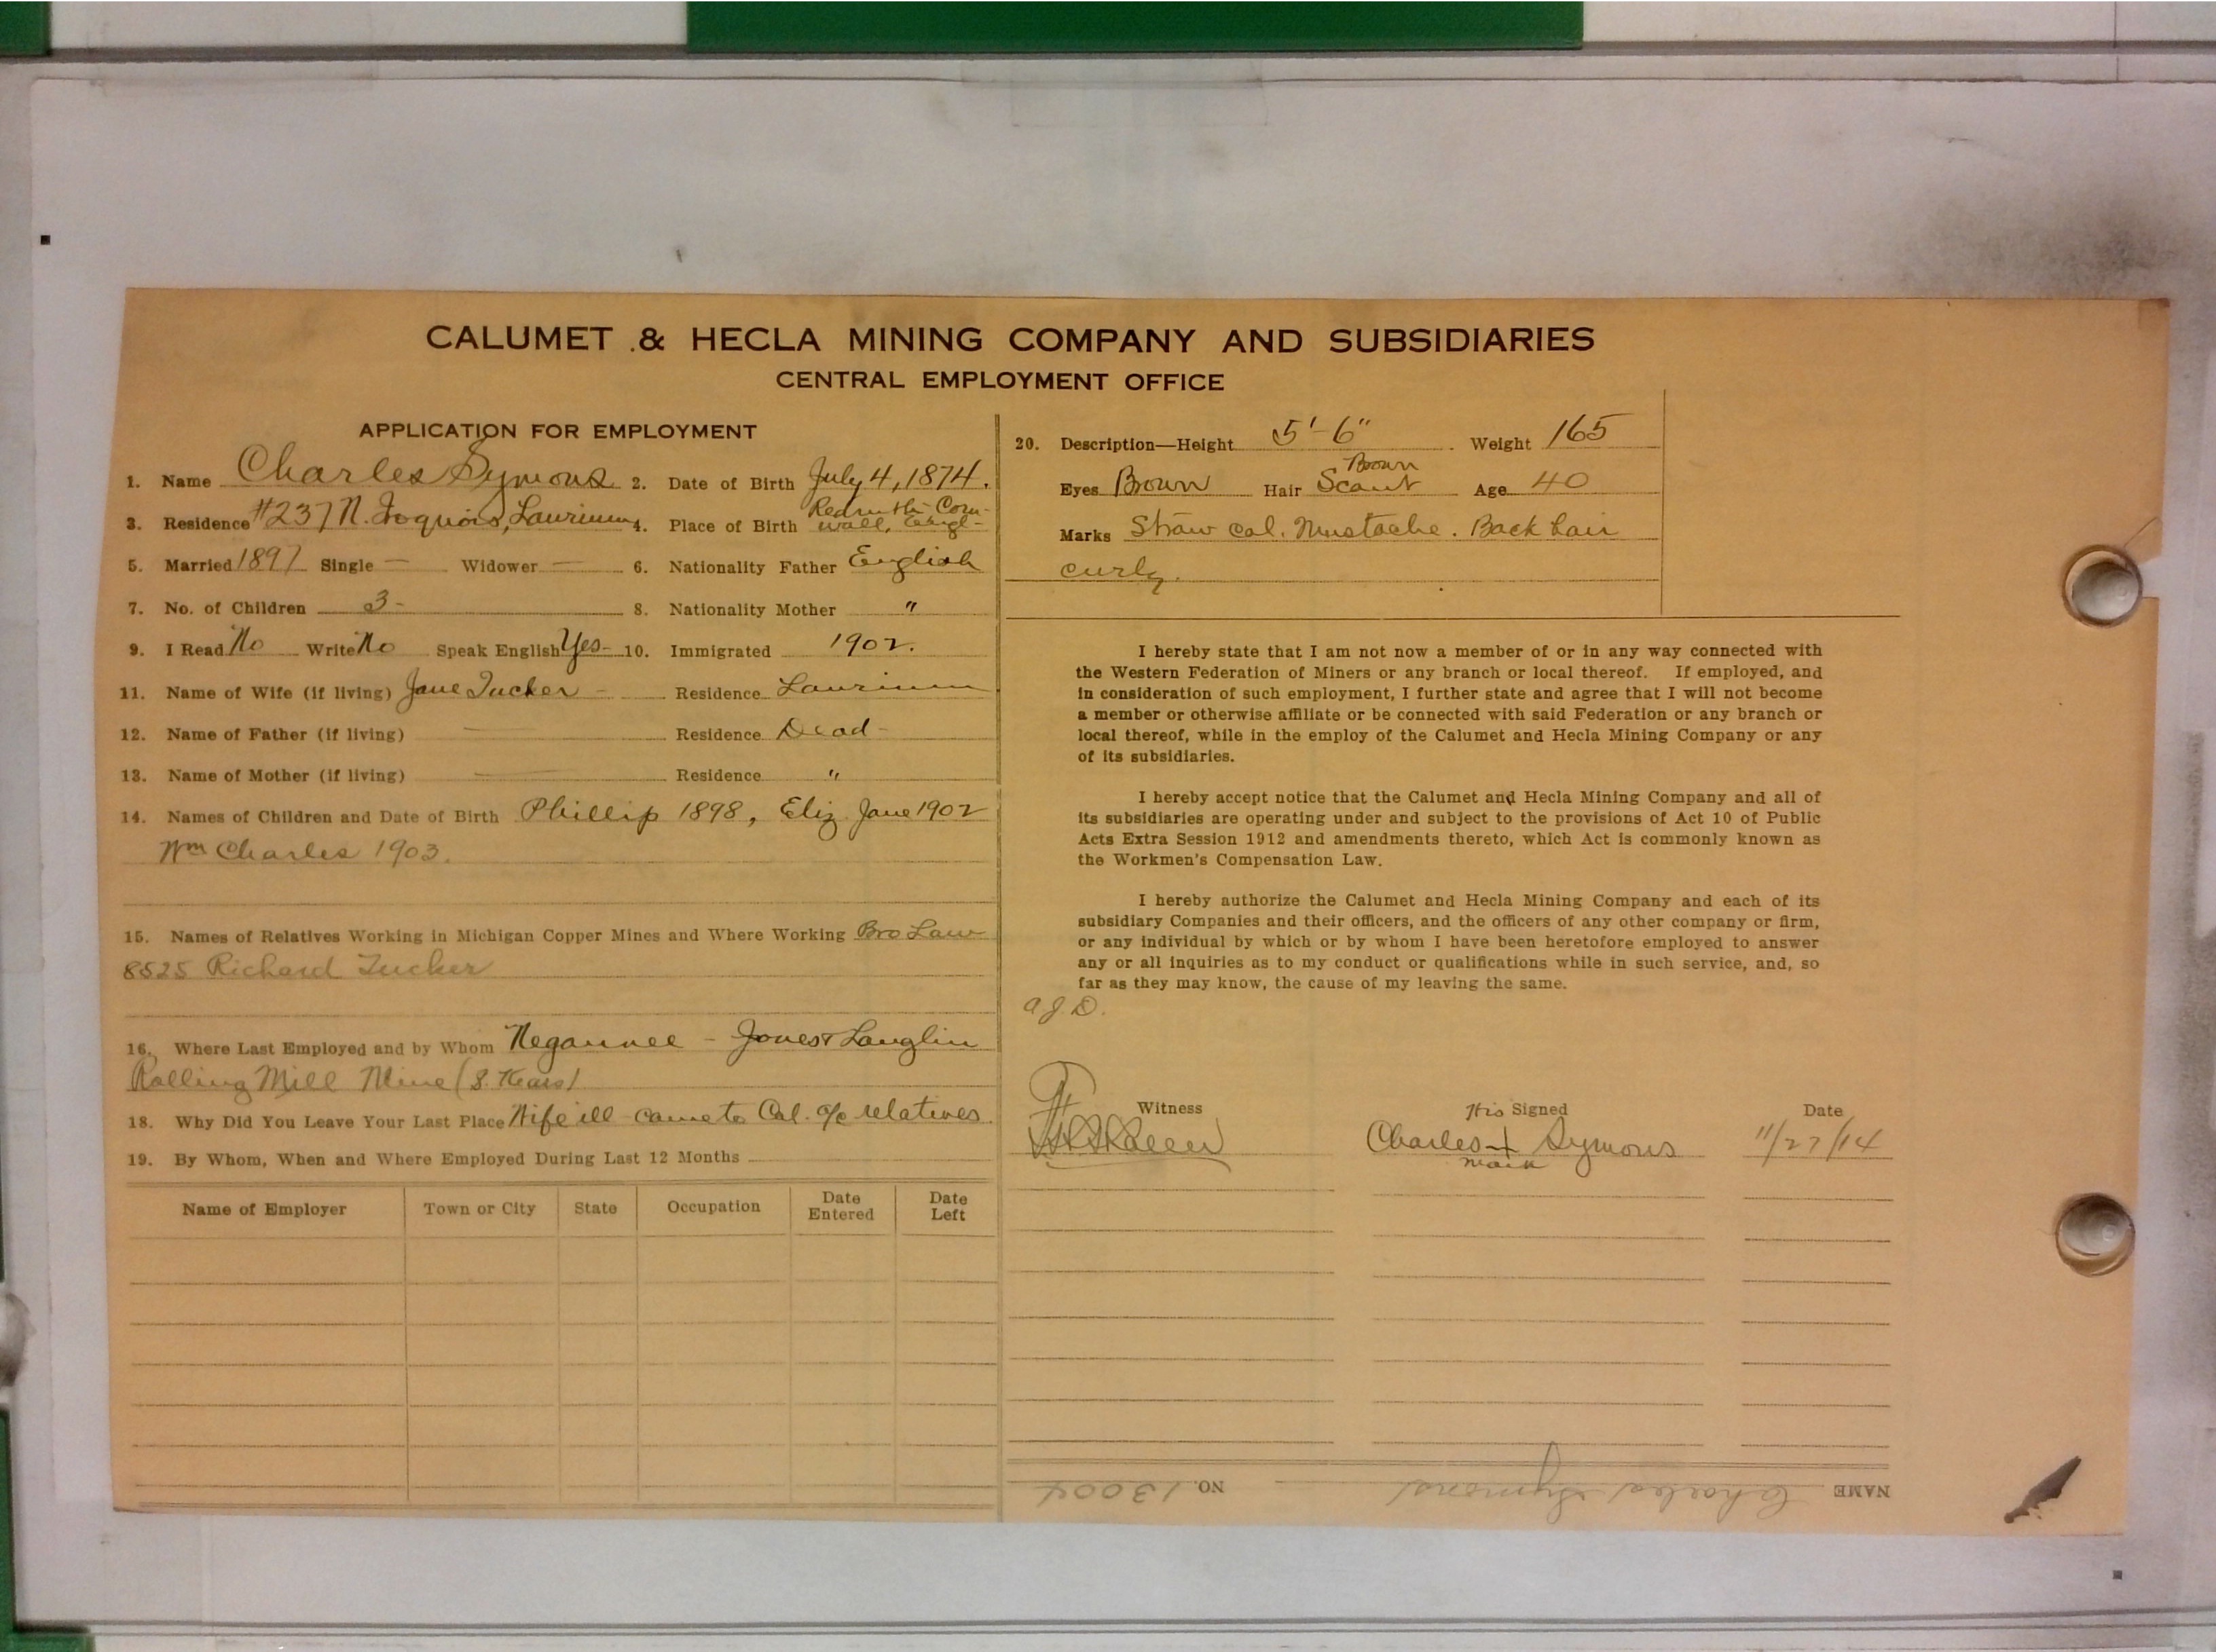 CALUMET & HECLA MINING COMPANY AND SUBSIDIARIES
CENTRAL EMPLOYMENT OFFICE
APPLICATION FOR EMPLOYMENT
1. Name Charles Symons 2. Date of Birth July 4, 1874.
3. Residence #237 N. Iroquois, Laurium 4. Place of Birth Redruth Corn-
wall, Engl-
5. Married 1897 Single — Widower — 6. Nationality Father English
7. No. of Children 3- 8. Nationality Mother "
9. I Read No Write No Speak English Yes- 10. Immigrated 1902.
11. Name of Wife (if living) Jane Tucker - Residence Laurium
12. Name of Father (if living) — Residence Dead-
13. Name of Mother (if living) — Residence "
14. Names of Children and Date of Birth Phillip 1898, Eliz Jane 1902
Wm Charles 1903.
15. Names of Relatives Working in Michigan Copper Mines and Where Working Bro Law
8525 Richard Tucker
16. Where Last Employed and by Whom Negaunee - Jones & Lauglin
Rolling Mill Mine (8. Years)
18. Why Did You Leave Your Last Place Wife ill came to Cal. o/c relatives.
19. By Whom, When and Where Employed During Last 12 Months
Name of Employer Town or City State Occupation Date Entered Date Left
20. Description—Height 5'-6" Weight 165
Brown
Eyes Brown Hair Scant Age 40
Marks Straw col. Mustache. Back hair
curly.
I hereby state that I am not now a member of or in any way connected with
the Western Federation of Miners or any branch or local thereof. If employed, and
in consideration of such employment, I further state and agree that I will not become
a member or otherwise affiliate or be connected with said Federation or any branch or
local thereof, while in the employ of the Calumet and Hecla Mining Company or any
of its subsidiaries.
I hereby accept notice that the Calumet and Hecla Mining Company and all of
its subsidiaries are operating under and subject to the provisions of Act 10 of Public
Acts Extra Session 1912 and amendments thereto, which Act is commonly known as
the Workmen's Compensation Law.
I hereby authorize the Calumet and Hecla Mining Company and each of its
subsidiary Companies and their officers, and the officers of any other company or firm,
or any individual by which or by whom I have been heretofore employed to answer
any or all inquiries as to my conduct or qualifications while in such service, and, so
far as they may know, the cause of my leaving the same.
a J D.
Witness His Signed Date
Charles + Symons 11/27/14
mark
NAME Charles Symons NO. 13004